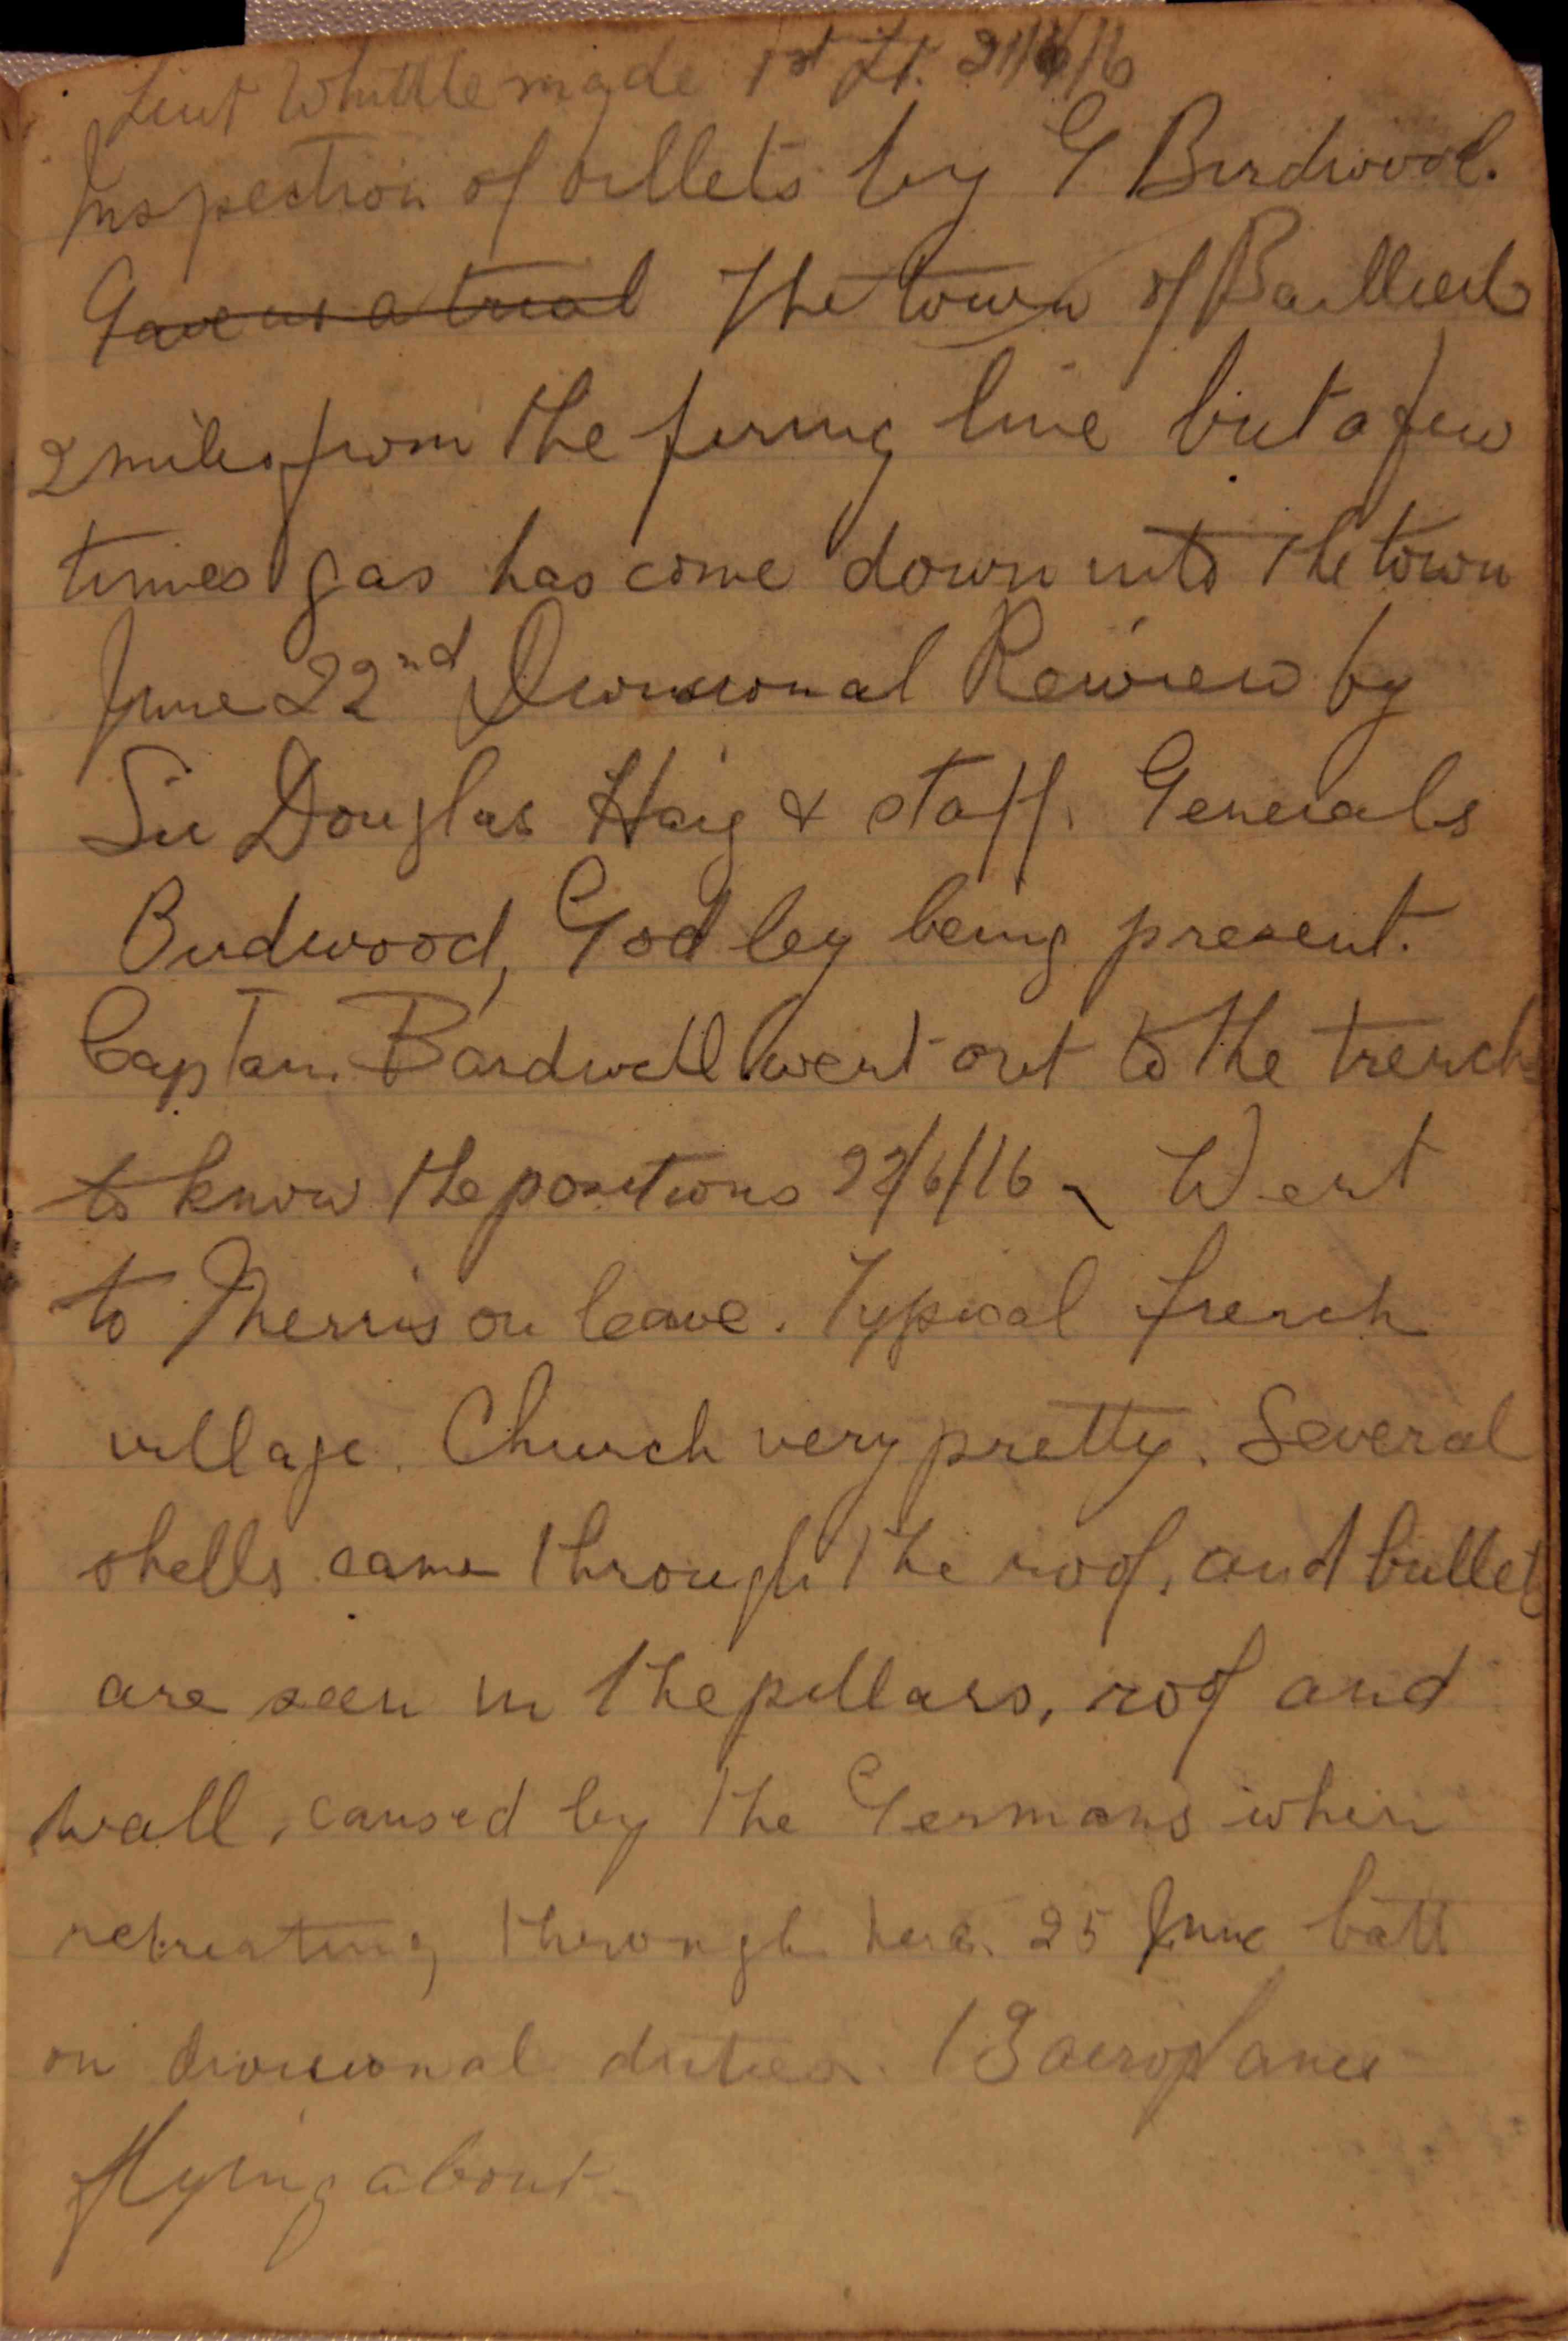 Lieut Whittle made 1st Lt. 21/6/16
Inspection of billets by G Birdwood.
Gave us a trial The town of Bailleul
2 miles from the firing line but a few
times gas has come down into the town
June 22nd Divisional Review by
Sir Douglas Haig & staff. Generals
Birdwood, Godley being present.
Captain Bardwell went out to the trench
to know the positions 22/6/16 Went
to Merris on leave. Typical french
village. Church very pretty. Several
shells came through the roof, and bullet
are seen in the pillars, roof and
wall, caused by the Germans when
retreating through here. 25 June batt
on divisional duties. 13 aeroplanes
flying about